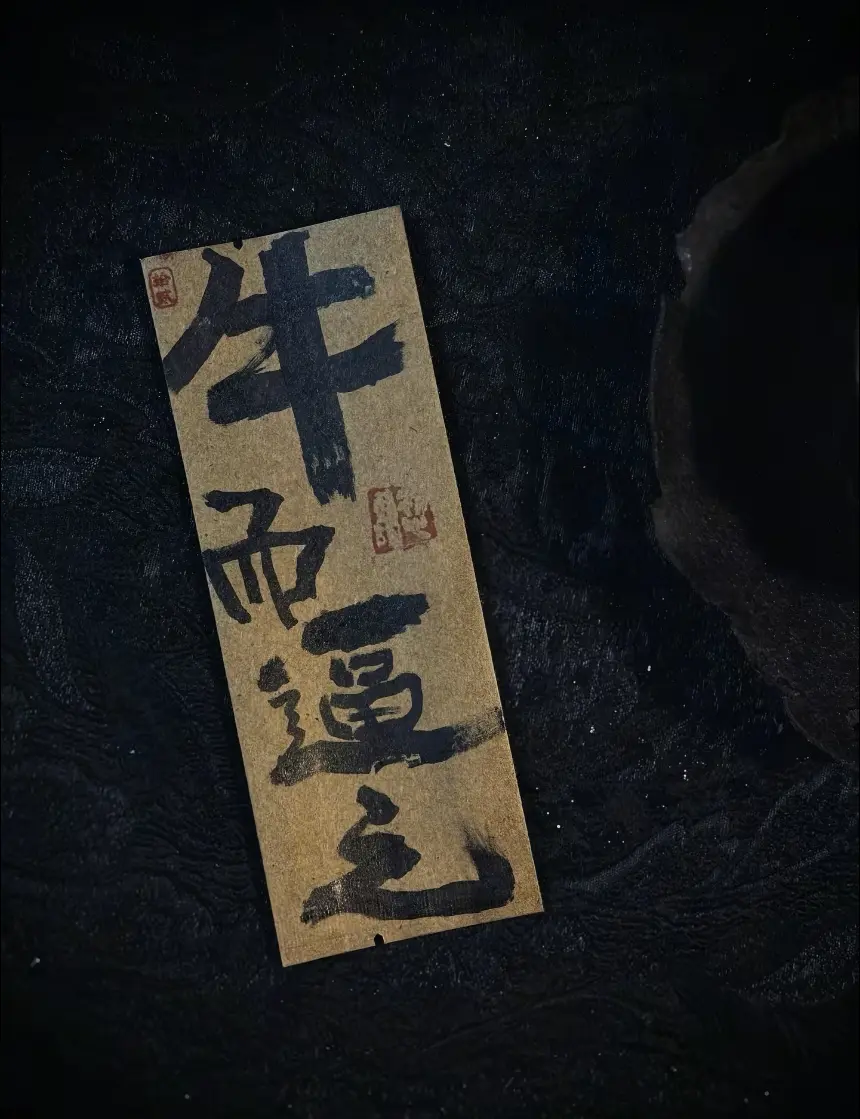 牛而逼之